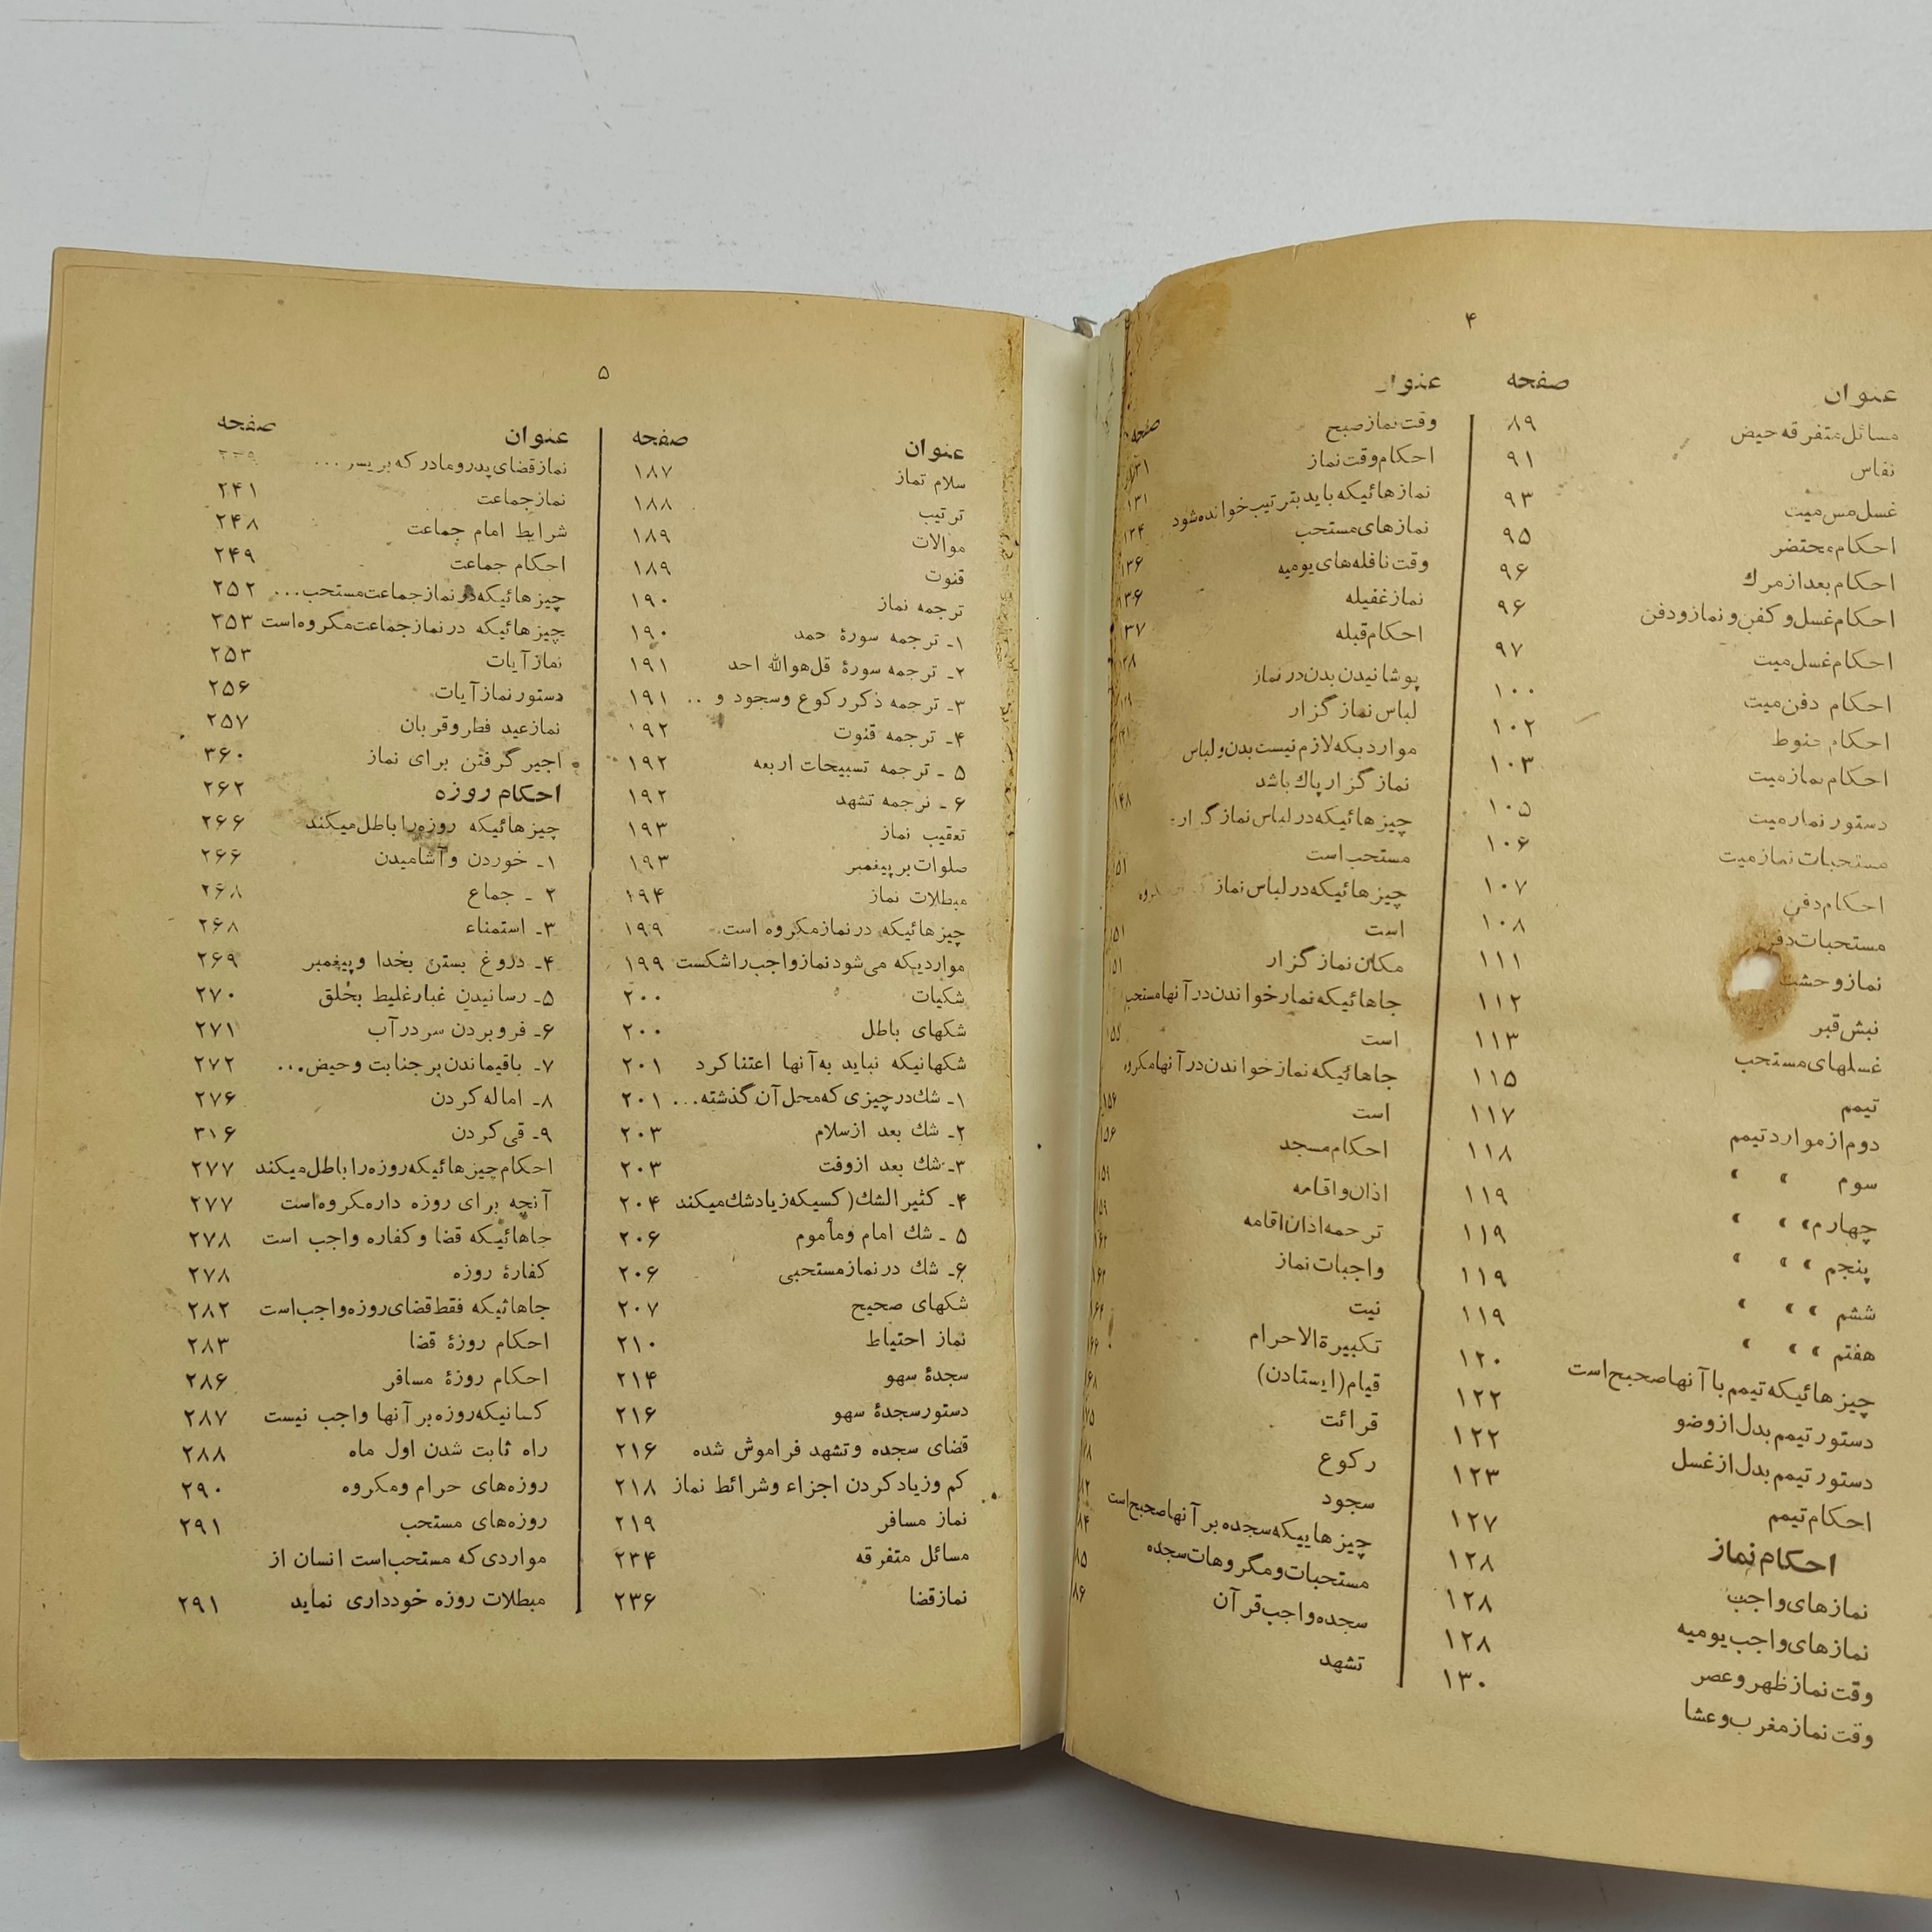 ۴
عنوان صفحه
مسائل متفرقه حیض ۸۹
نفاس ۹۱
غسل مس میت ۹۳
احکام محتضر ۹۵
احکام بعد از مرگ ۹۶
احکام غسل و کفن و نماز و دفن ۹۶
احکام غسل میت ۹۷
احکام دفن میت ۱۰۰
احکام حنوط ۱۰۲
احکام نماز میت ۱۰۳
دستور نماز میت ۱۰۵
مستحبات نماز میت ۱۰۶
احکام دفن ۱۰۷
مستحبات دفن ۱۰۸
نماز وحشت ۱۱۱
نبش قبر ۱۱۲
غسلهای مستحب ۱۱۳
تیمم ۱۱۵
دوم از موارد تیمم ۱۱۷
سوم » » ۱۱۸
چهارم » » » ۱۱۹
پنجم » » » ۱۱۹
ششم » » » ۱۱۹
هفتم » » » ۱۱۹
چیزهائیکه تیمم با آنها صحیح است ۱۲۰
دستور تیمم بدل از وضو ۱۲۲
دستور تیمم بدل از غسل ۱۲۲
احکام تیمم ۱۲۳
احکام نماز ۱۲۷
نمازهای واجب ۱۲۸
نمازهای واجب یومیه ۱۲۸
وقت نماز ظهر و عصر ۱۲۸
وقت نماز مغرب و عشا ۱۳۰
عنوان صفحه
وقت نماز صبح
احکام وقت نماز ۱۳۱
نمازهائیکه باید بترتیب خوانده شود ۱۳۴
نمازهای مستحب ۱۳۶
وقت نافله‌های یومیه
نماز غفیله
احکام قبله
پوشانیدن بدن در نماز
لباس نماز گزار
مواردیکه لازم نیست بدن و لباس
نماز گزار پاك باشد ۱۴۸
چیزهائیکه در لباس نماز گزار
مستحب است
چیزهائیکه در لباس نماز مکروه
است
مکان نماز گزار
جاهائیکه نماز خواندن در آنها مستحب
است
جاهائیکه نماز خواندن در آنها مکروه
است
احکام مسجد
اذان و اقامه
ترجمه اذان اقامه
واجبات نماز
نیت
تکبیرة الاحرام
قیام (ایستادن)
قرائت
رکوع
سجود
چیزهاییکه سجده بر آنها صحیح است
مستحبات و مکروهات سجده
سجده واجب قرآن
تشهد
۵
عنوان صفحه
سلام نماز ۱۸۷
ترتیب ۱۸۸
موالات ۱۸۹
قنوت ۱۸۹
ترجمه نماز ۱۹۰
۱ـ ترجمه سورهٔ حمد ۱۹۰
۲ـ ترجمه سورهٔ قل هو الله احد ۱۹۱
۳ـ ترجمه ذکر رکوع وسجود و .. ۱۹۱
۴ـ ترجمه قنوت ۱۹۲
۵ ـ ترجمه تسبیحات اربعه ۱۹۲
۶ ـ ترجمه تشهد ۱۹۲
تعقیب نماز ۱۹۳
صلوات بر پیغمبر ۱۹۳
مبطلات نماز ۱۹۴
چیزهائیکه در نماز مکروه است ۱۹۹
مواردیکه می‌شود نماز واجب را شکست ۱۹۹
شکیات ۲۰۰
شکهای باطل ۲۰۰
شکهائیکه نباید به آنها اعتنا کرد ۲۰۱
۱ـ شك در چیزی که محل آن گذشته... ۲۰۱
۲ـ شك بعد از سلام ۲۰۳
۳ـ شك بعد از وقت ۲۰۳
۴ـ کثیر الشك (کسیکه زیاد شك میکند ۲۰۴
۵ ـ شك امام ومأموم ۲۰۶
۶ـ شك در نماز مستحبی ۲۰۶
شکهای صحیح ۲۰۷
نماز احتیاط ۲۱۰
سجدهٔ سهو ۲۱۴
دستور سجدهٔ سهو ۲۱۶
قضای سجده وتشهد فراموش شده ۲۱۶
کم وزیاد کردن اجزاء وشرائط نماز ۲۱۸
نماز مسافر ۲۱۹
مسائل متفرقه ۲۳۴
نماز قضا ۲۳۶
عنوان صفحه
نماز قضای پدر و مادر که بر پسر ... ۲۳۹
نماز جماعت ۲۴۱
شرایط امام جماعت ۲۴۸
احکام جماعت ۲۴۹
چیزهائیکه در نماز جماعت مستحب... ۲۵۲
چیزهائیکه در نماز جماعت مکروه است ۲۵۳
نماز آیات ۲۵۳
دستور نماز آیات ۲۵۶
نماز عید فطر و قربان ۲۵۷
اجیر گرفتن برای نماز ۳۶۰
احکام روزه ۲۶۲
چیزهائیکه روزه را باطل میکند ۲۶۶
۱ـ خوردن و آشامیدن ۲۶۶
۲ ـ جماع ۲۶۸
۳ـ استمناء ۲۶۸
۴ـ دروغ بستن بخدا وپیغمبر ۲۶۹
۵ـ رسانیدن غبار غلیط بحلق ۲۷۰
۶ـ فرو بردن سر در آب ۲۷۱
۷ـ باقیماندن بر جنابت و حیض... ۲۷۲
۸ـ اماله کردن ۲۷۶
۹ـ قی کردن ۳۱۶
احکام چیزهائیکه روزه را باطل میکند ۲۷۷
آنچه برای روزه دار مکروه است ۲۷۷
جاهائیکه قضا و کفاره واجب است ۲۷۸
کفارهٔ روزه ۲۷۸
جاهائیکه فقط قضای روزه واجب است ۲۸۲
احکام روزهٔ قضا ۲۸۳
احکام روزهٔ مسافر ۲۸۶
کسانیکه روزه بر آنها واجب نیست ۲۸۷
راه ثابت شدن اول ماه ۲۸۸
روزه‌های حرام ومکروه ۲۹۰
روزه‌های مستحب ۲۹۱
مواردی که مستحب است انسان از
مبطلات روزه خودداری نماید ۲۹۱